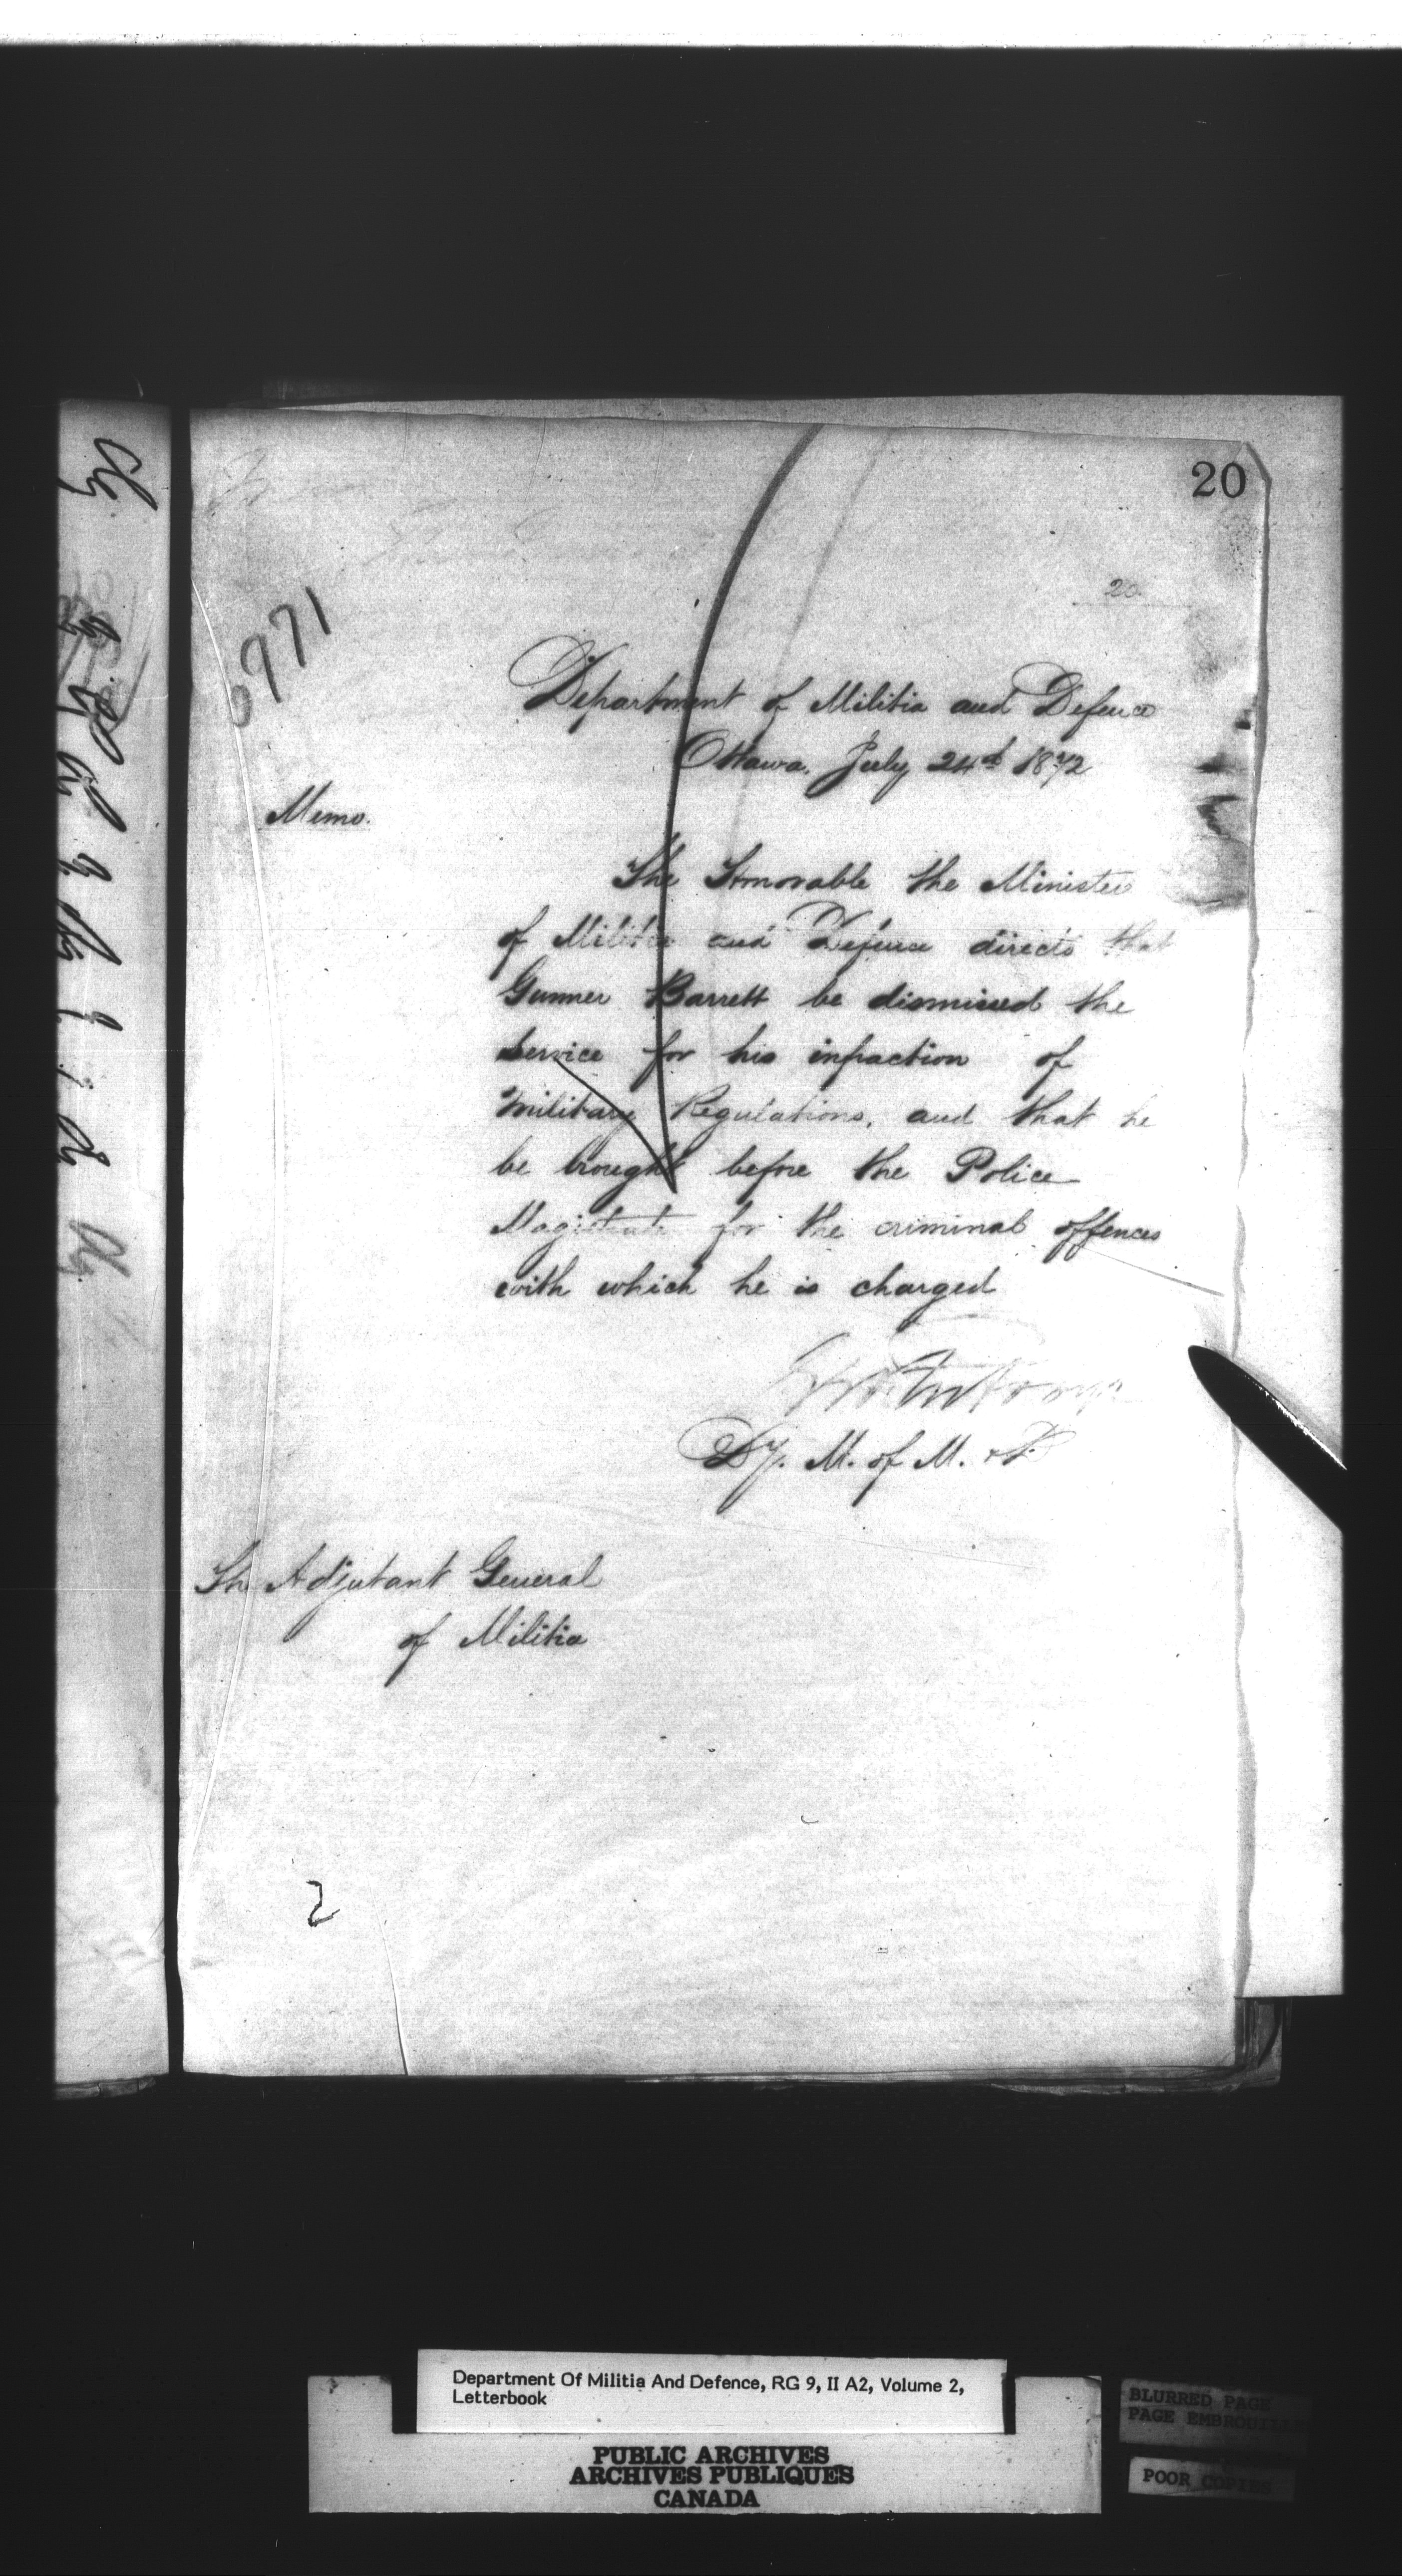 20
20.
6771
Department of Militia and Defence
Ottawa. July 24th 1872
Memo.
The Honorable the Minister
of Militia and Defence directs that
Gunner Barrett be dismissed the
service for his infraction of
Military Regulations, and that he
be brought before the Police
Magistrate for the criminal offences
with which he is charged
Dy. M. of M. & D
The Adjutant General
of Militia
2
Department Of Militia And Defence, RG 9, II A2, Volume 2,
Letterbook
PUBLIC ARCHIVES
ARCHIVES PUBLIQUES
CANADA
BLURRED PAGE
PAGE EMBROUILLE
POOR COPIES